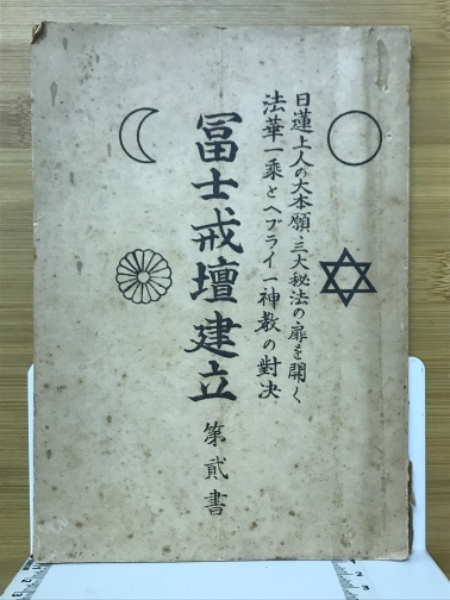 日蓮上人の大本願、三大秘法の扉を開く
法華一乘とヘブライ一神教の對決
冨士戒壇建立
第貳書